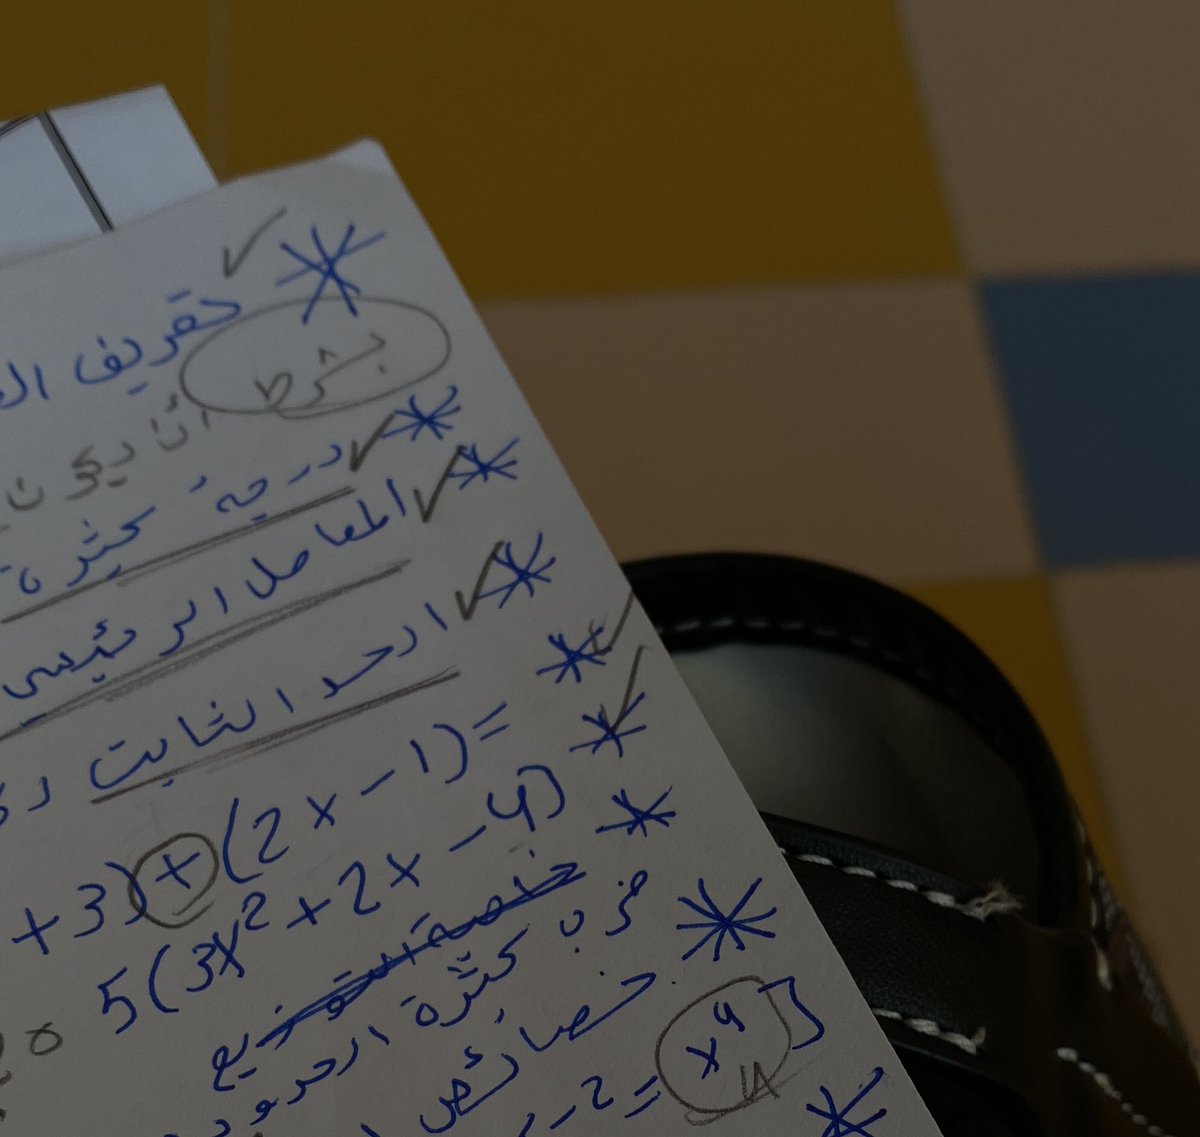 تعريف ال
بشرط
أن يكون
درجة كثيرة
المعامل الرئيسي
الحد الثابت
+3)+(2x-1)=
5(3x²+2x-4)
خاصية التوزيع
ضرب كثيرة الحدود
خصائص
x⁴]
-2=